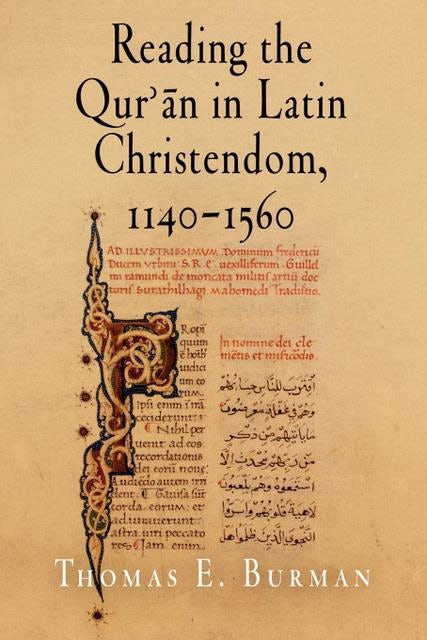 Reading the
Qurʾān in Latin
Christendom,
1140–1560
AD ILLVSTRISSIMVM Dominum fredericū
Ducem vrbini S. R. e. uexilliferum Guillel
mi ramundi de moncata militis artiū doc
toris Surathilhagi Mahomedi
Ropī
quum
udici
um eo
rum.
Ipsi enim
ceciderunt
Nihil per
uenit ad eos
recordationis
dei eorū noue
autem irri
dent. Gauisa sūt
corda eorum: et
uiri peccato
res Iam enim
In nomine dei cle
mētis et misericōdis.
اقترب للناس حسابهم
وهم في غفلة معرضون
ما ياتيهم من ذكر
من ربهم محدث الا
استمعوه وهم يلعبون
لاهية قلوبهم واسروا
النجوى الذين ظلموا هل
THOMAS E. BURMAN